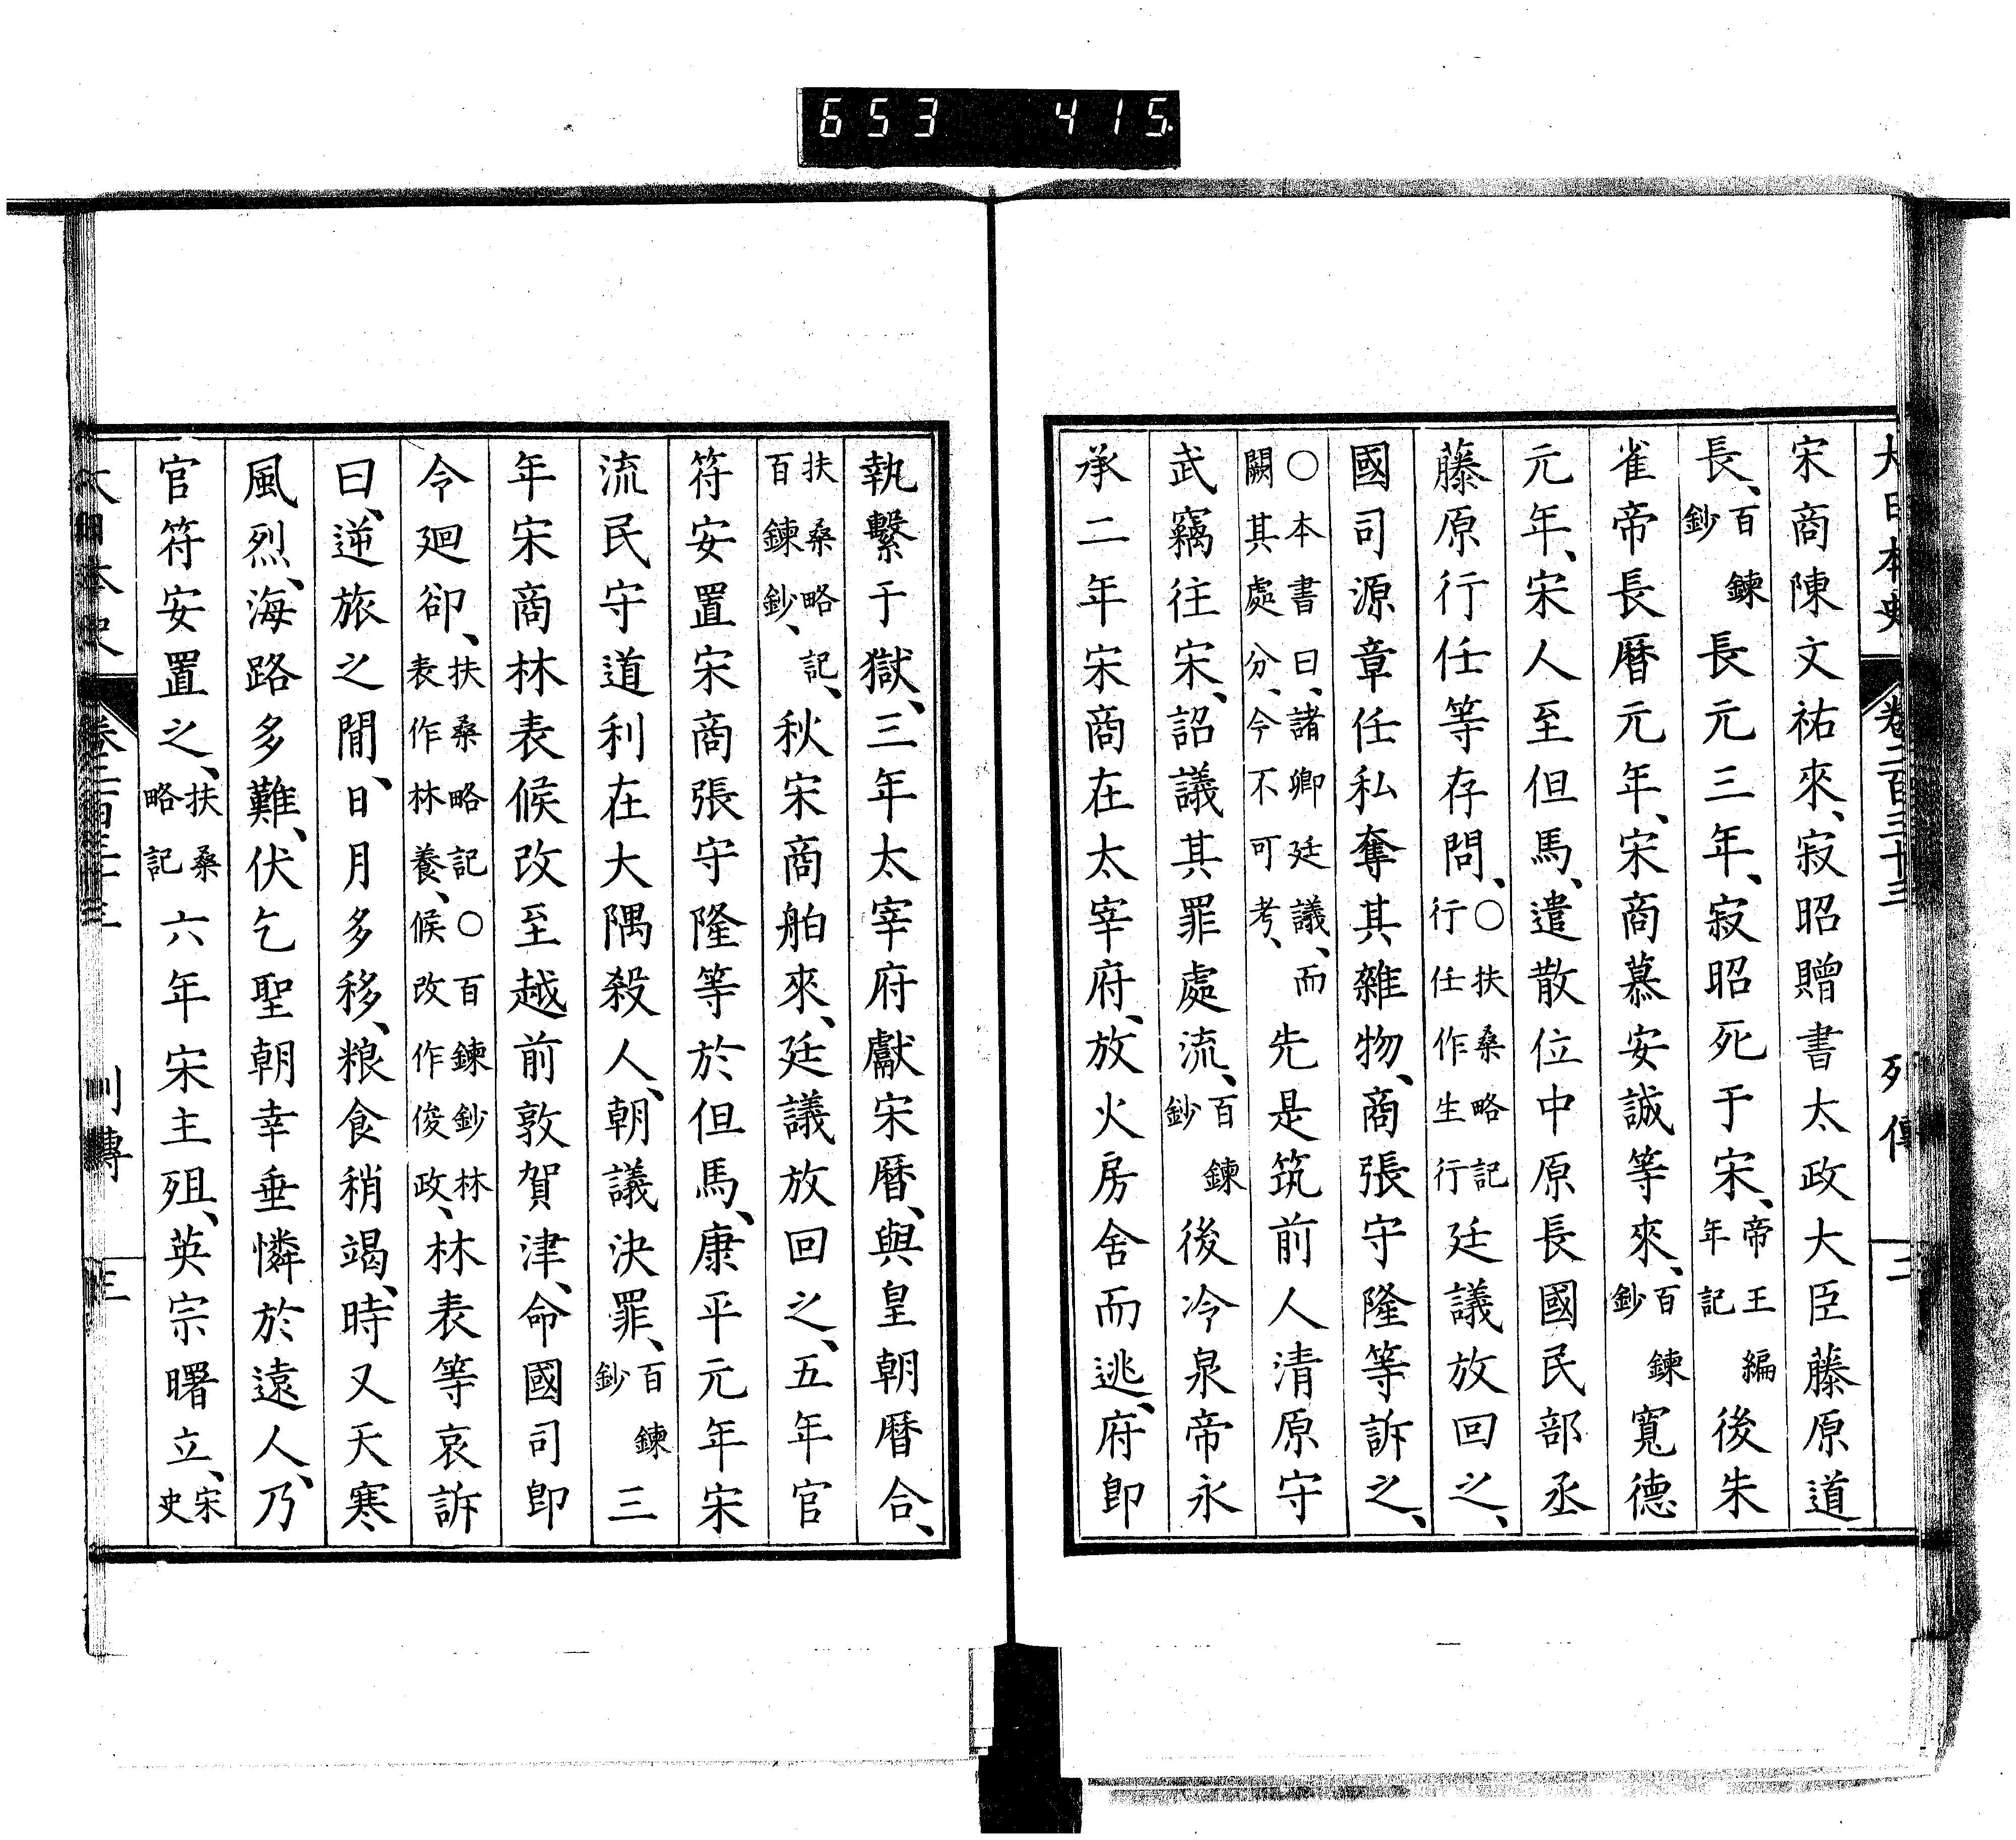 653 415
大日本史 卷二百三十三 列傳 二
宋商陳文祐來、寂昭贈書太政大臣藤原道
長、百鍊鈔長元三年、寂昭死于宋、帝王編年記後朱
雀帝長曆元年、宋商慕安誠等來、百鍊鈔寬德
元年、宋人至但馬、遣散位中原長國民部丞
藤原行任等存問、○扶桑略記行任作生行廷議放回之、
國司源章任私奪其雜物、商張守隆等訴之、
○本書曰、諸卿廷議、而闕其處分、今不可考、先是筑前人清原守
武竊往宋、詔議其罪處流、百鍊鈔後冷泉帝永
承二年宋商在太宰府、放火房舍而逃、府卽
執繫于獄、三年太宰府獻宋曆、與皇朝曆合、
扶桑略記、百鍊鈔、秋宋商舶來、廷議放回之、五年官
符安置宋商張守隆等於但馬、康平元年宋
流民守道利在大隅殺人、朝議決罪、百鍊鈔三
年宋商林表候改至越前敦賀津、命國司卽
令廻卻、扶桑略記○百鍊鈔林表作林養、候改作俊政、林表等哀訴
曰、逆旅之間、日月多移、粮食稍竭、時又天寒
風烈、海路多難、伏乞聖朝幸垂憐於遠人、乃
官符安置之、扶桑略記六年宋主殂、英宗曙立、宋史
大日本史 卷二百三十三 列傳 三